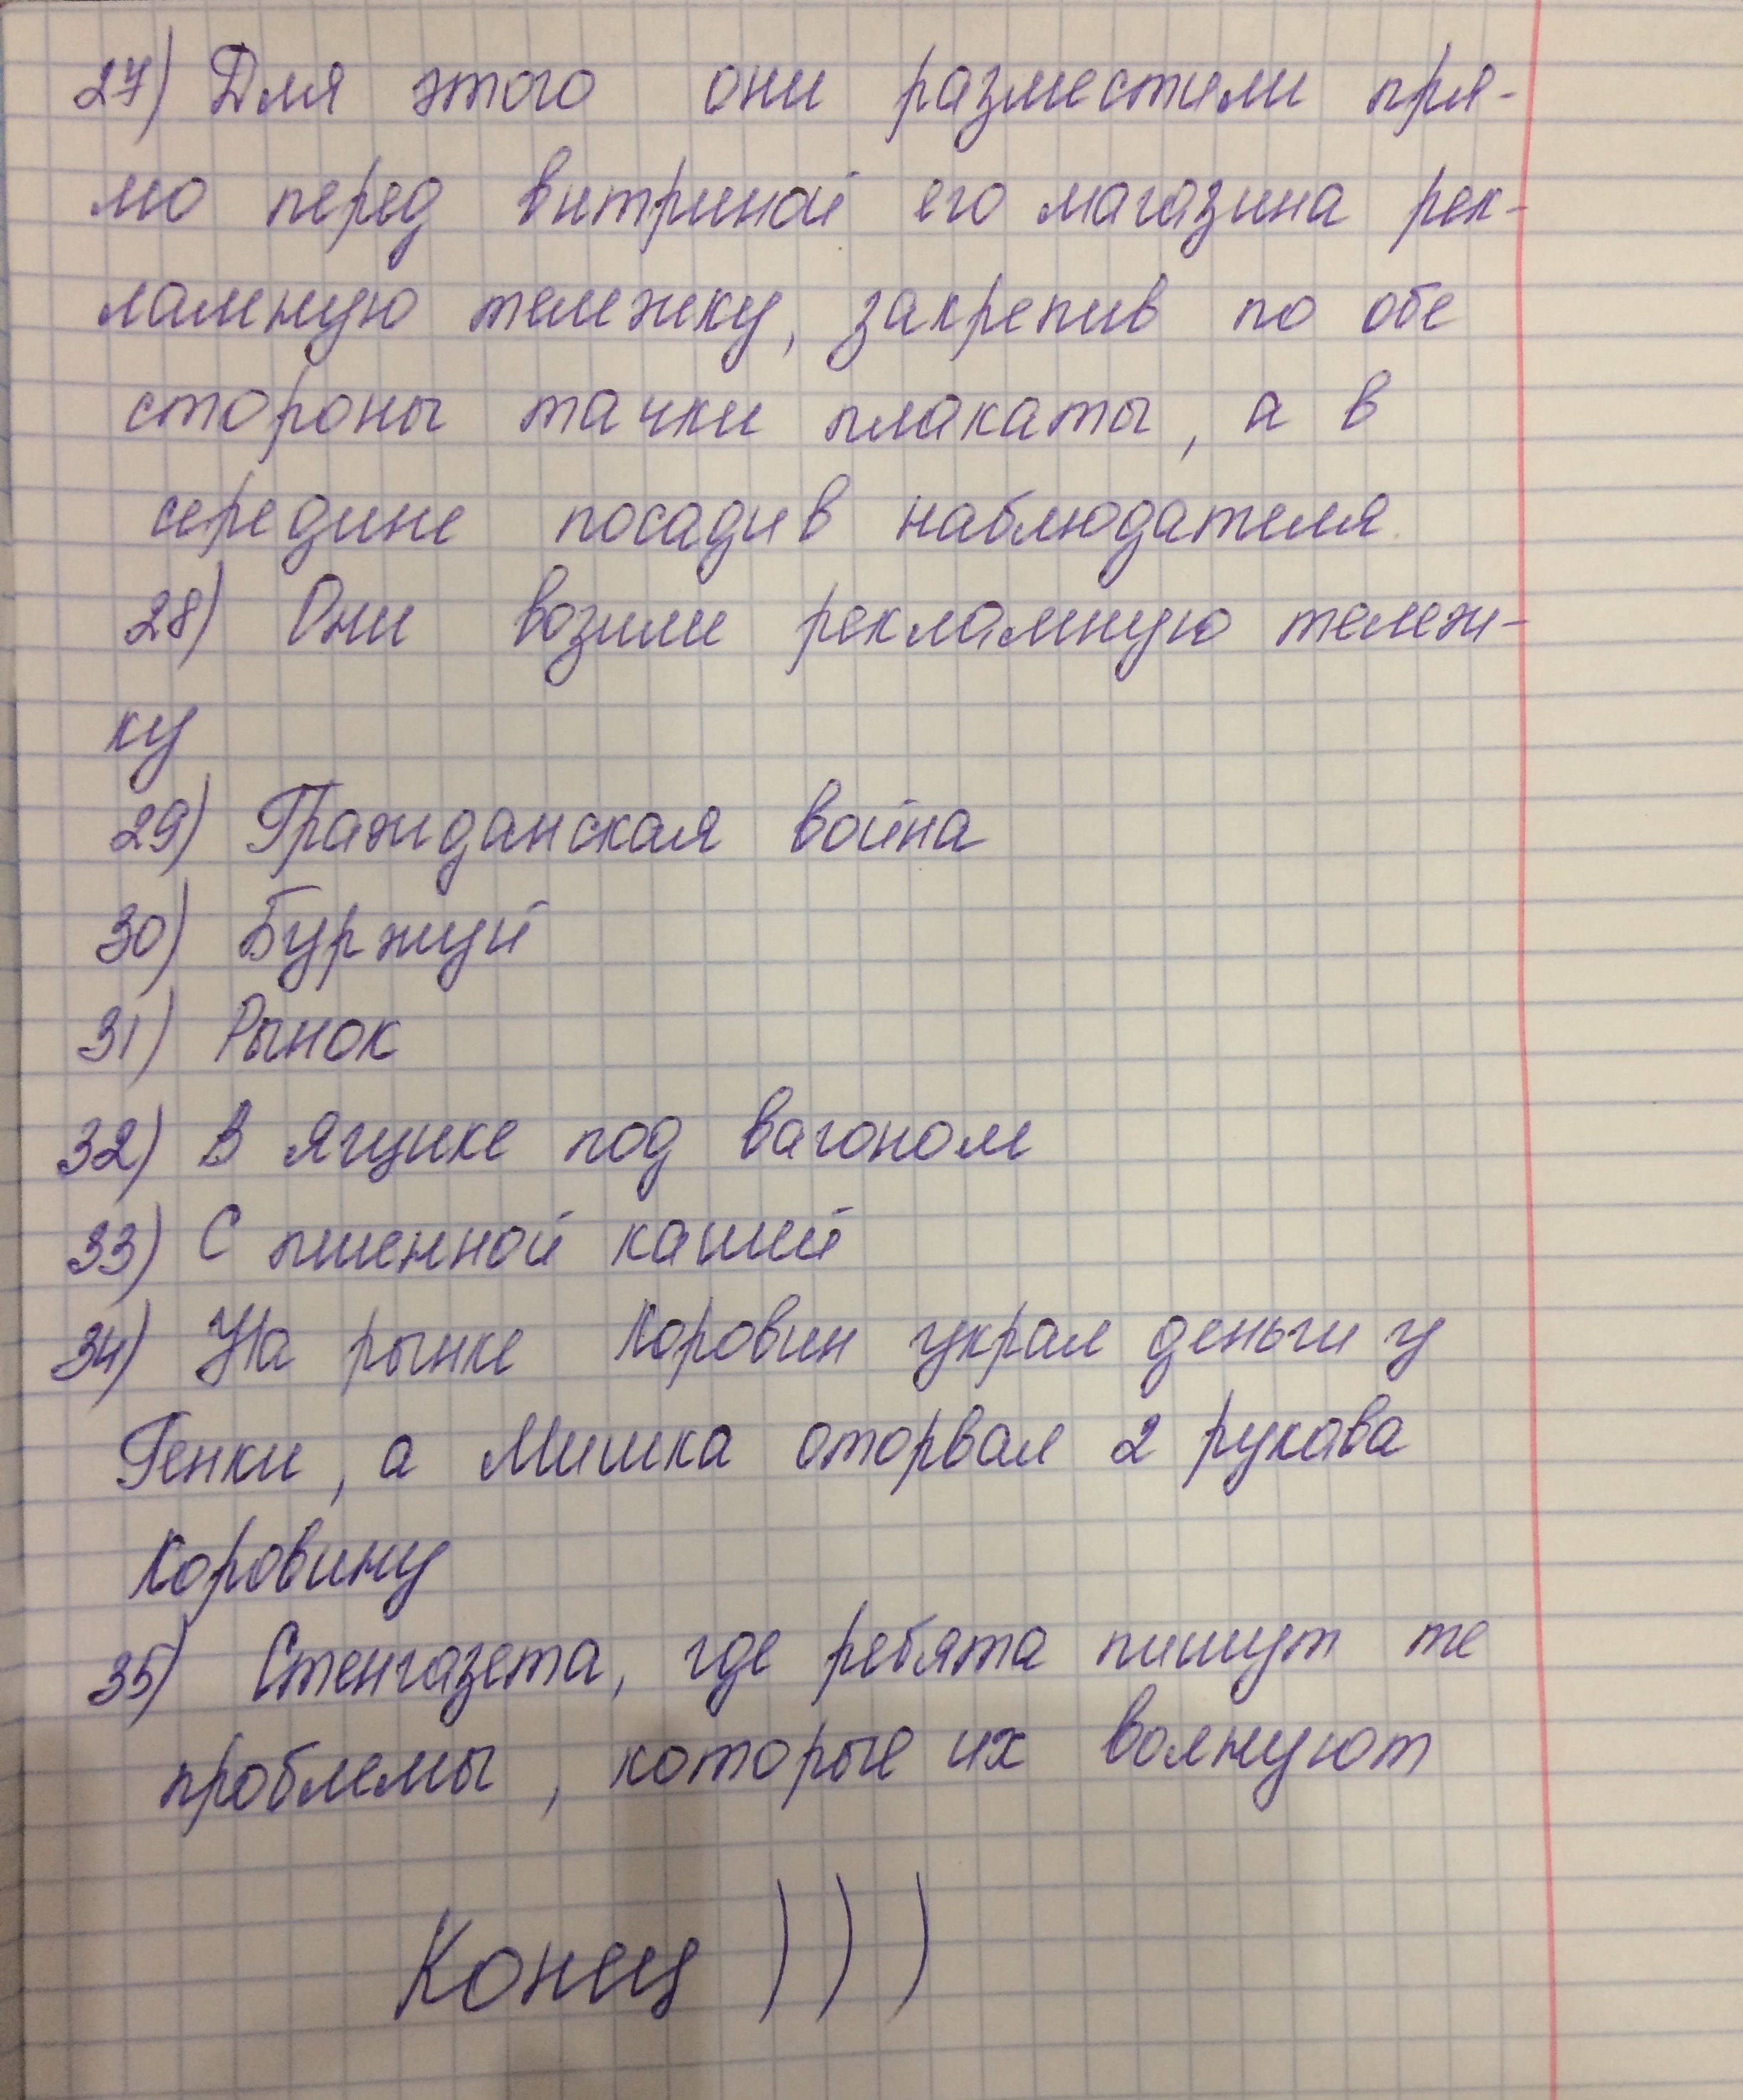 27) Для этого они разместили пря-
мо перед витриной его магазина рек-
ламную тележку, закрепив по обе
стороны тачки плакаты, а в
середине посадив наблюдателя.
28) Они возили рекламную тележ-
ку
29) Гражданская война
30) Буржуй
31) Рынок
32) В ящике под вагоном
33) С пшенной кашей
34) На рынке Коровин украл деньги у
Генки, а Мишка оторвал 2 рукава
Коровину
35) Стенгазета, где ребята пишут те
проблемы, которые их волнуют
Конец )))